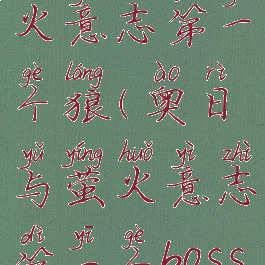 火意志第一
gè láng ào rì
个狼(奥日
yǔ yíng huǒ yì zhì
与萤火意志
dì yī gè
第一个boss